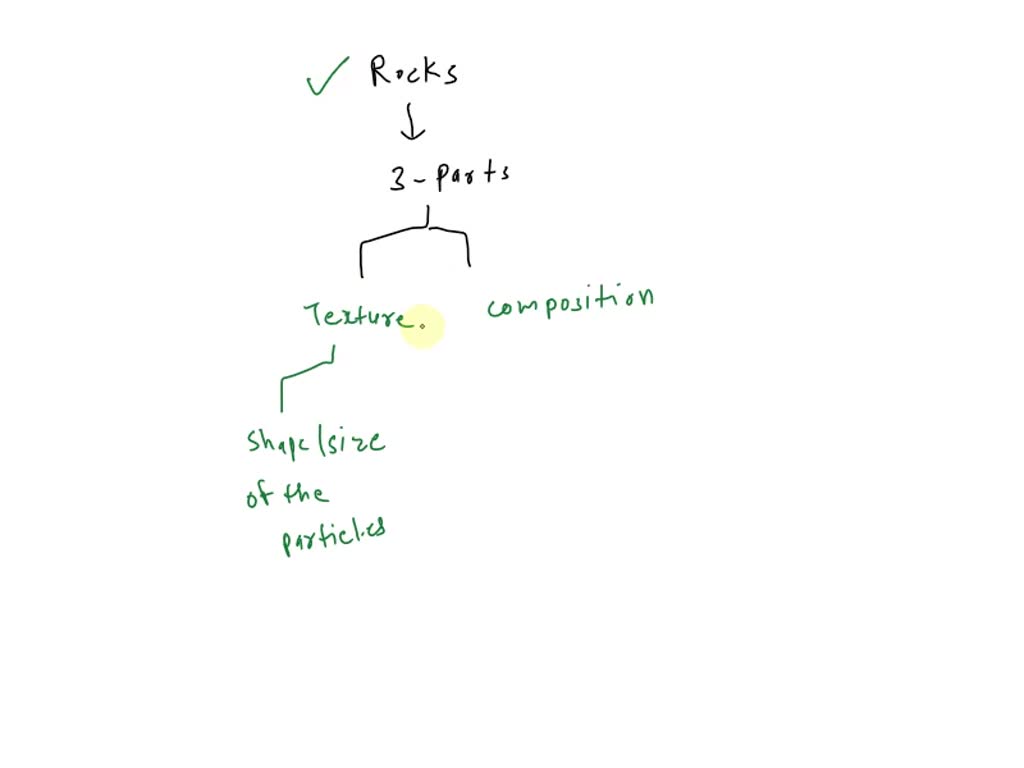 ✓ Rocks
↓
3 - parts
Texture. composition
shape/size
of the
particles